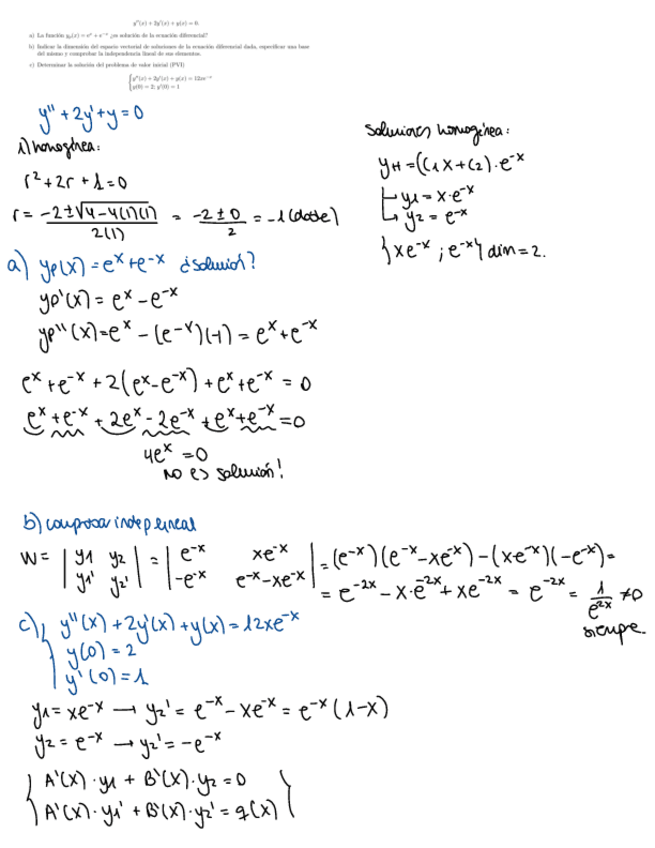 y''(x) + 2y'(x) + y(x) = 0.
a) La función yₚ(x) = eˣ + e⁻ˣ ¿es solución de la ecuación diferencial?
b) Indicar la dimensión del espacio vectorial de soluciones de la ecuación diferencial dada, especificar una base
del mismo y comprobar la independencia lineal de sus elementos.
c) Determinar la solución del problema de valor inicial (PVI)
{ y''(x) + 2y'(x) + y(x) = 12xe⁻ˣ
y(0) = 2; y'(0) = 1
y'' + 2y' + y = 0
1) homogénea:
r² + 2r + 1 = 0
r = (-2 ± √(4 - 4(1)(1))) / 2(1) = (-2 ± 0) / 2 = -1 (doble)
Soluciones homogénea:
yH = (C1 x + C2) · e⁻ˣ
y1 = x · e⁻ˣ
y2 = e⁻ˣ
{xe⁻ˣ ; e⁻ˣ} dim = 2.
a) yp(x) = eˣ + e⁻ˣ ¿solución?
yp'(x) = eˣ - e⁻ˣ
yp''(x) = eˣ - (e⁻ˣ)(-1) = eˣ + e⁻ˣ
eˣ + e⁻ˣ + 2(eˣ - e⁻ˣ) + eˣ + e⁻ˣ = 0
eˣ + e⁻ˣ + 2eˣ - 2e⁻ˣ + eˣ + e⁻ˣ = 0
4eˣ = 0
NO es solución!
b) comproba indep lineal
W = | y1 y2 | = | e⁻ˣ xe⁻ˣ | = (e⁻ˣ)(e⁻ˣ - xe⁻ˣ) - (xe⁻ˣ)(-e⁻ˣ) =
| y1' y2' | | -e⁻ˣ e⁻ˣ - xe⁻ˣ | = e⁻²ˣ - x · e⁻²ˣ + xe⁻²ˣ = e⁻²ˣ = 1/e²ˣ ≠ 0
siempre.
c) { y''(x) + 2y'(x) + y(x) = 12xe⁻ˣ
y(0) = 2
y'(0) = 1
y1 = xe⁻ˣ → y2' = e⁻ˣ - xe⁻ˣ = e⁻ˣ(1 - x)
y2 = e⁻ˣ → y2' = -e⁻ˣ
{ A'(x) · y1 + B'(x) · y2 = 0 }
{ A'(x) · y1' + B'(x) · y2' = g(x) }